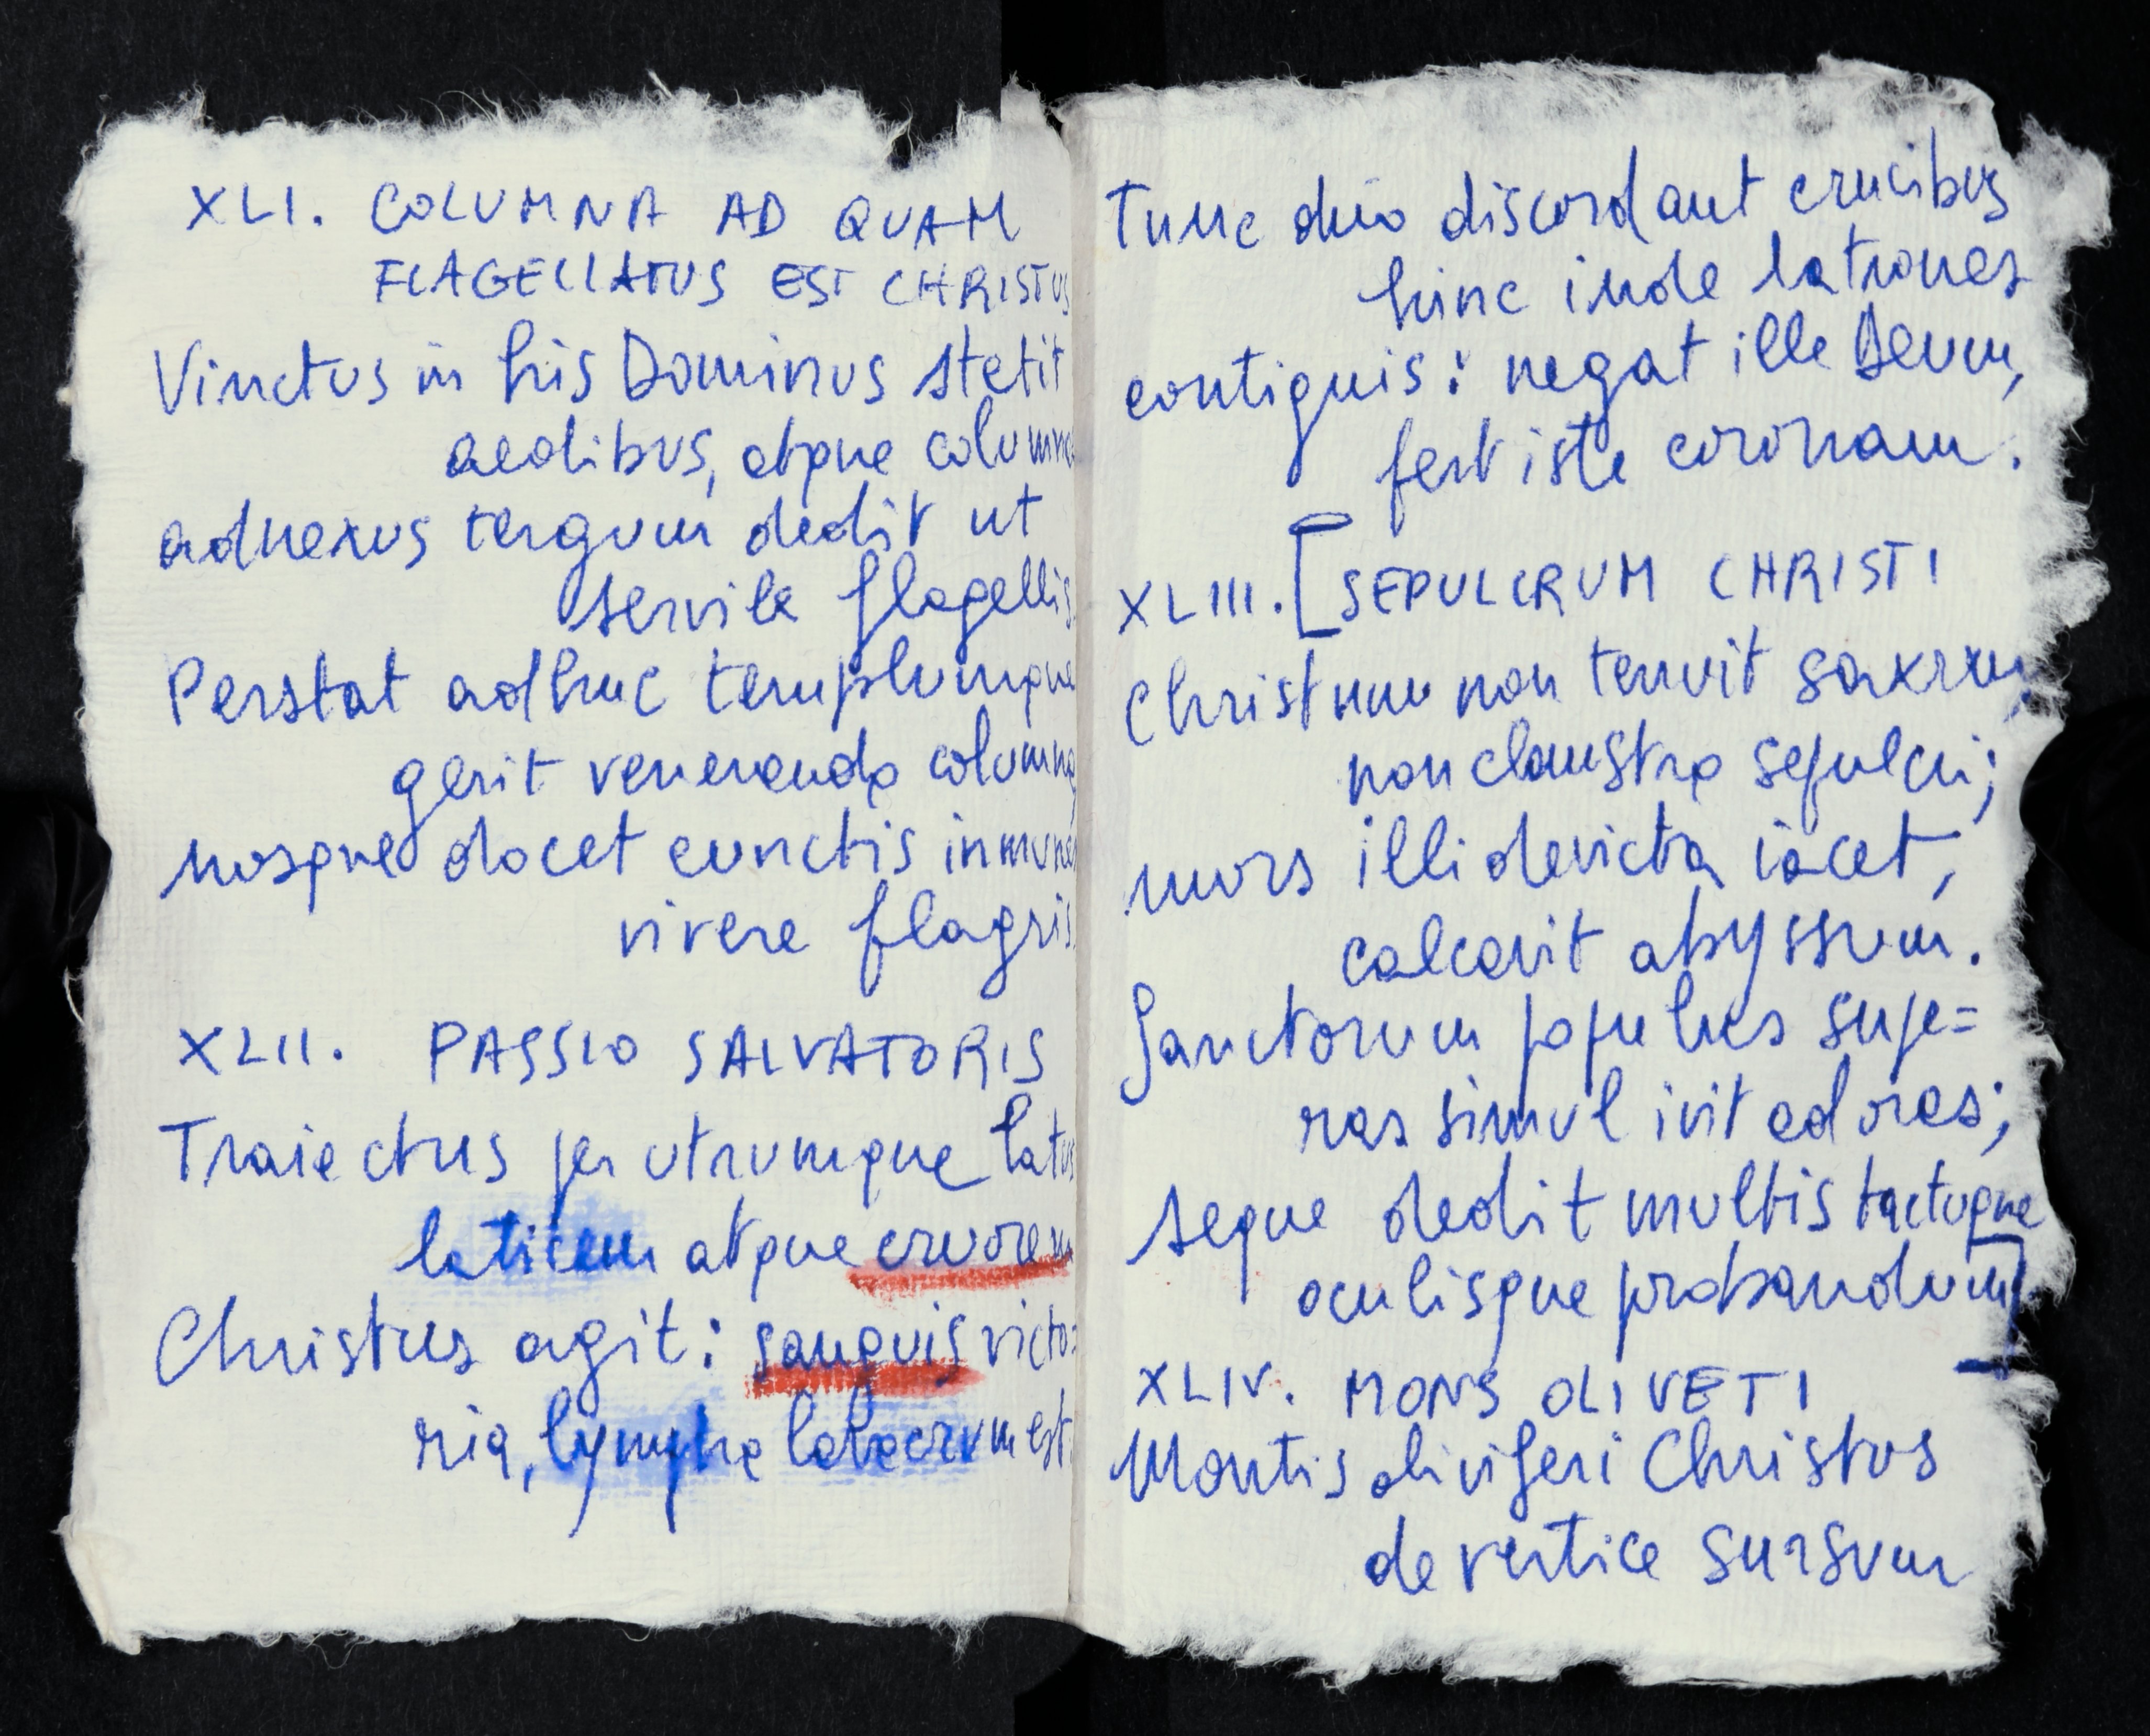 XLI. COLUMNA AD QUAM
FLAGELLATUS EST CHRISTUS
Vinctus in his Dominus stetit
aedibus, atque columna
adnexus tergum dedit ut
servile flagellis
Perstat adhuc templumque
gerit veneranda columna
nosque docet cunctis inmunes
vivere flagris
XLII. PASSIO SALVATORIS
Traiectus per utrumque latus
laticem atque cruorem
Christus agit: sanguis victo=
ria, lympha lavacrum est.
Tunc duo discordant crucibus
hinc inde latrones
contiguis: negat ille Deum,
fert iste coronam.
XLIII. [SEPULCRUM CHRISTI
Christum non tenuit saxum,
non claustra sepulcri;
mors illi devicta iacet,
calcavit abyssum.
Sanctorum populus supe=
ras simul ivit ad oras;
seque dedit multis tactuque
oculisque probandum]
XLIV. MONS OLIVETI
Montis oliviferi Christus
de vertice sursum